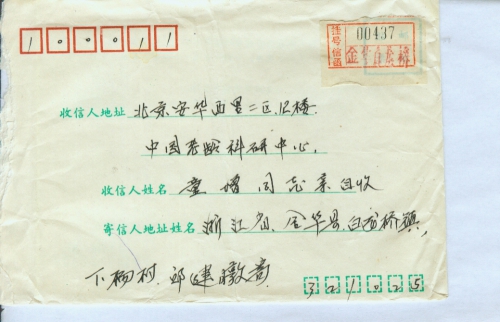 100011
挂号信函
00437
金华白龙桥
收信人地址 北京安华西里二区12楼
中国老龄科研中心,
收信人姓名 童 同志亲自收
寄信人地址姓名 浙江省、金华县、白龙桥镇,
下杨村、邱建
321025